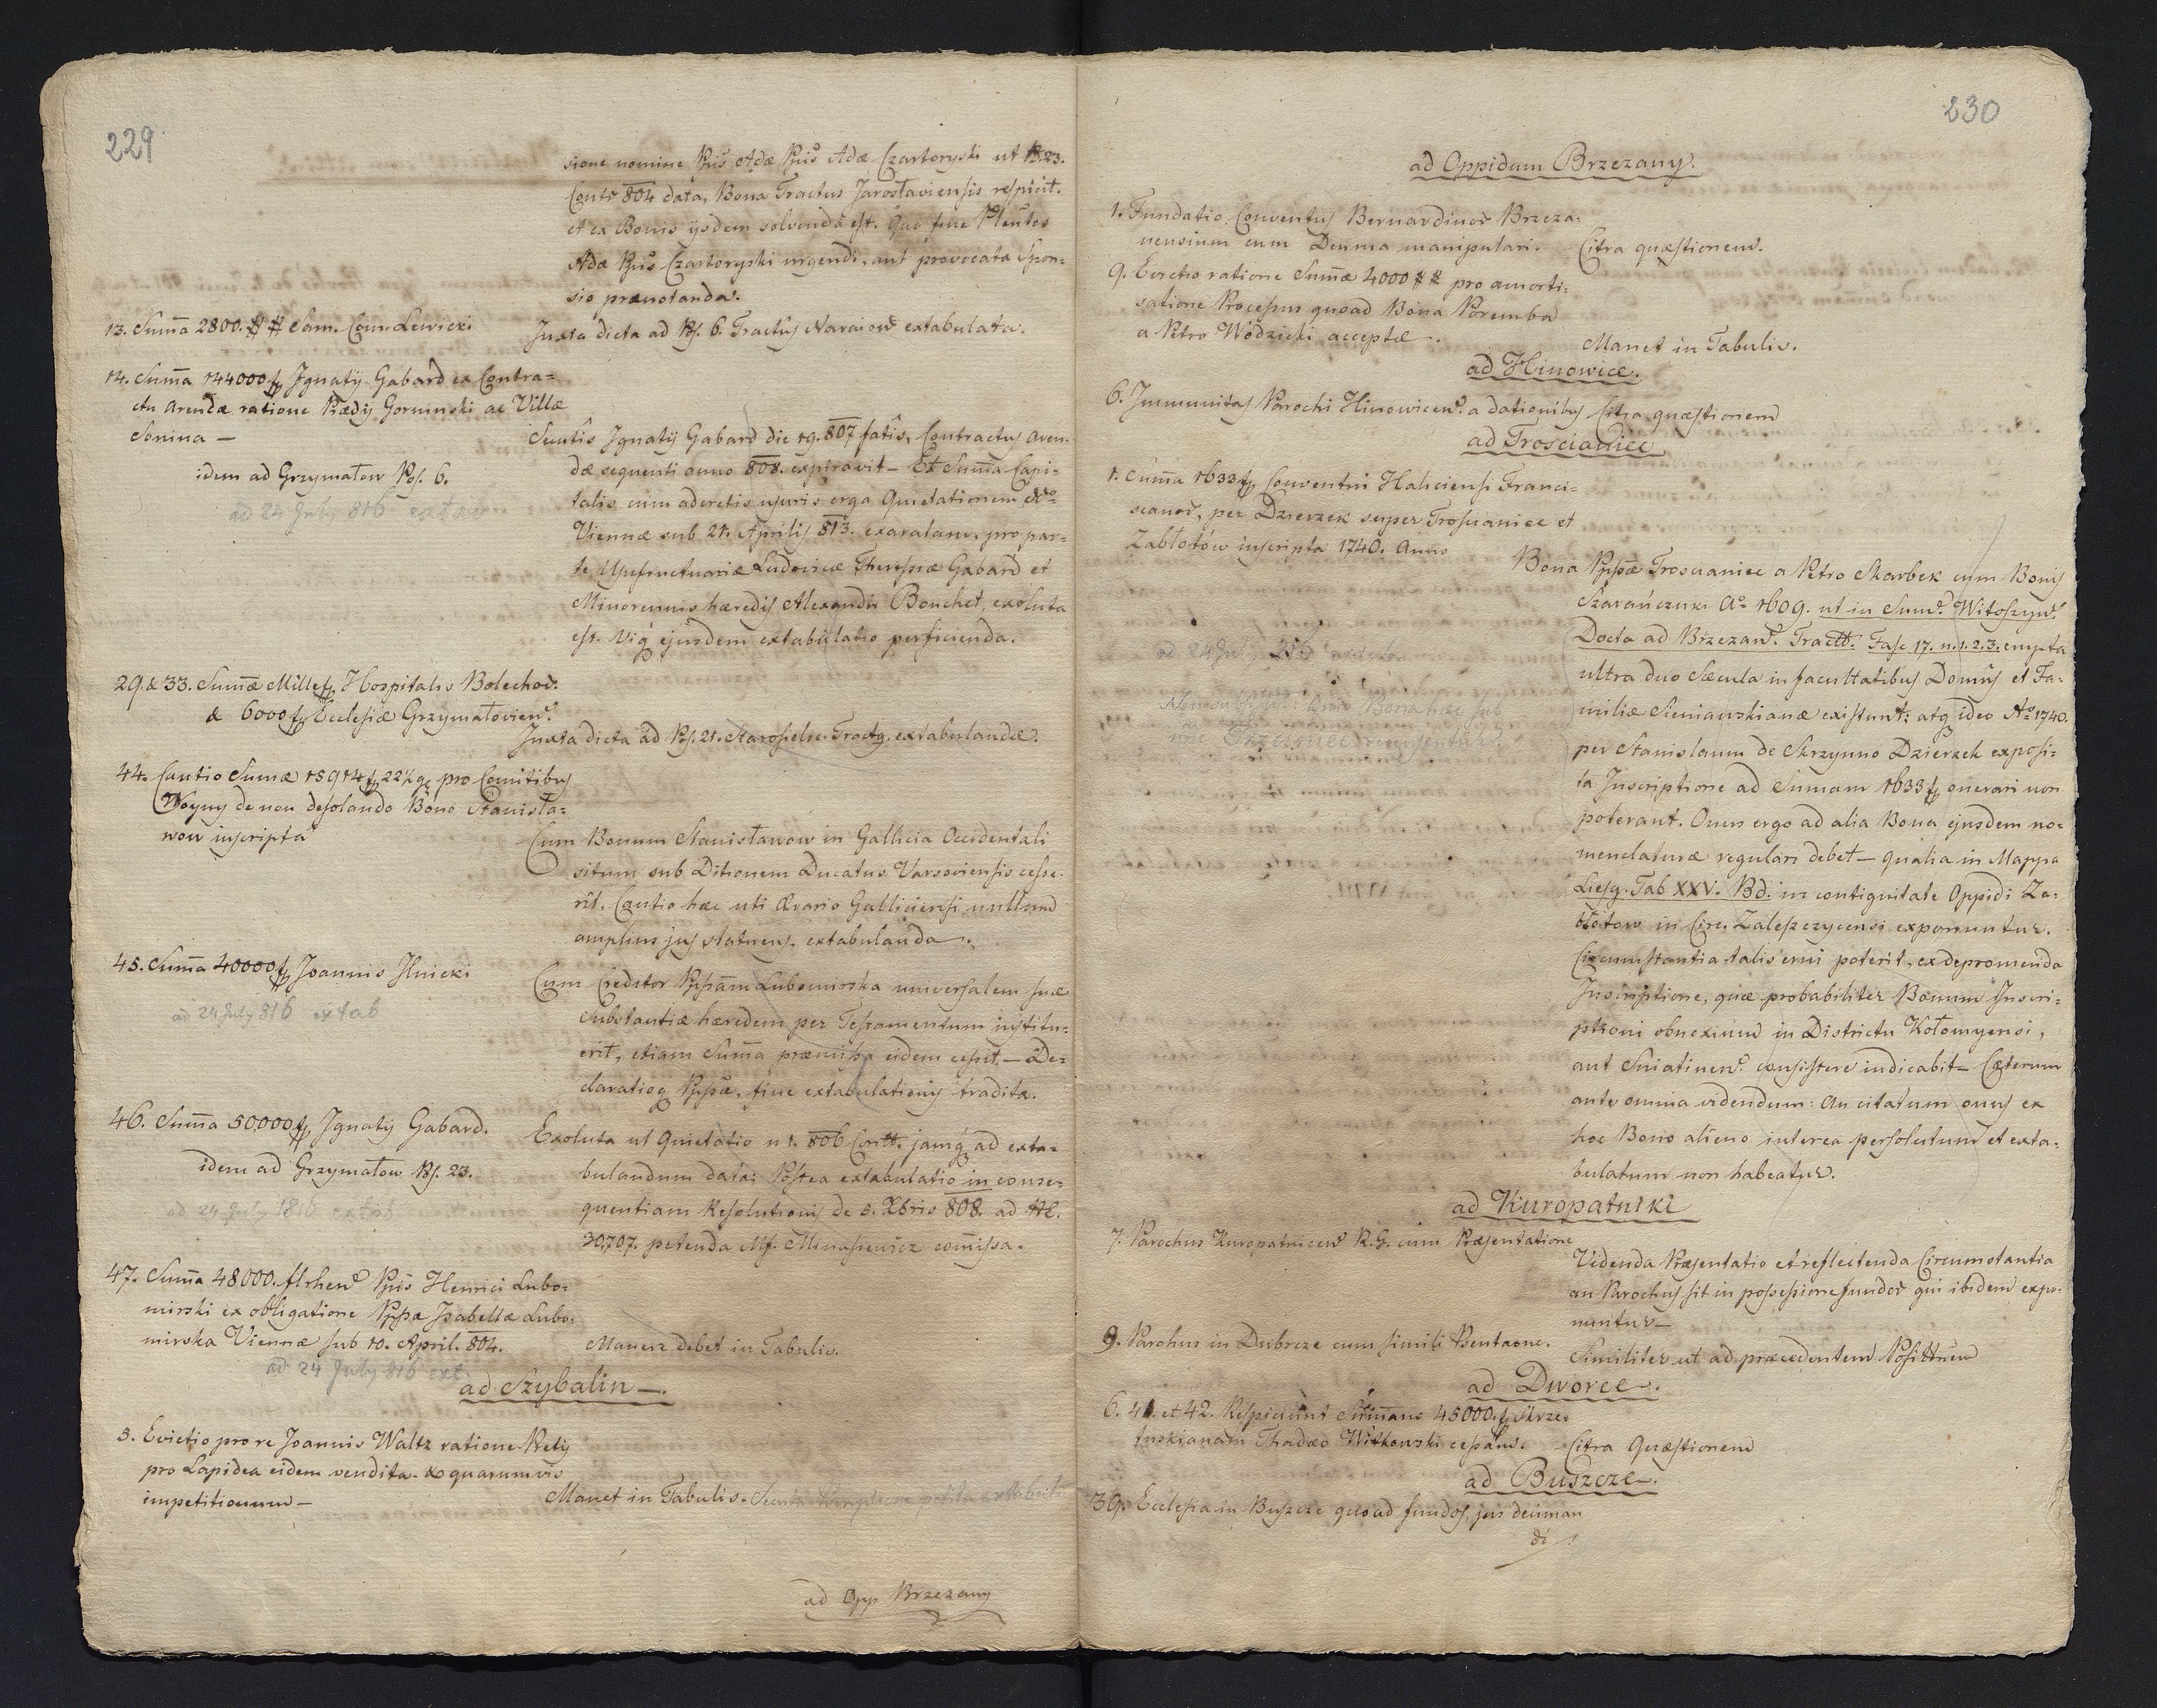 229
sione nomine Ppis Adæ Ppis Adæ Czartoryski ut 13.23.
Contr 804 data, Bona Tractus Jarosłaviensis respicit.
et ex Bonis ijsdem solvenda est. Quo fine Plentes
Adæ Ppis Czartoryski urgendi, aut provocata Spon=
sio prænotanda.
13. Sum̄a 2800. ## Sam. Com. Lewicki
Juxta dicta ad Ps. 6. Tractus Naraiow extabulata.
14. Sum̄a 144000 f Ignatij Gabard ex Contra=
ctu Arendæ ratione Prædij Gorninski ac Villæ
Sonina —
idem ad Grzymałow Ps. 6.
ad 24 July 816 extab
Sentis Ignatij Gabard die 19. 807 fatis, Contractus Aren=
dæ sequenti anno 808. expiravit — Et Sum̄a Capi=
talis cum adcretis usuris erga Quietationem
Viennæ sub 21. Aprilis 813. exaratam, pro par=
te Usufructuariæ Ludovicæ Theresiæ Gabard et
Minorennis hæredis Alexandri Bouchet, exoluta
est. Vig ejusdem extabulatio perficienda.
29. & 33. Sum̄æ Mille f Hospitalis Bolechov.
& 6000 f Ecclesiæ Grzymałovien.
Juxta dicta ad Ps. 21. Starosielce Tractg. extabulandæ.
44. Cautio Sumæ 15914 f 22½ g pro Comitibus
Woyny de non desolando Bono Stanisła=
wow inscripta
Cum Bonum Stanisławow in Gallicia Occidentali
situm sub Ditionem Ducatus Varsoviensis cesse=
rit. Cautio hæc uti Ærario Galliciensi nullum
amplius jus statuens, extabulanda.
45. Sum̄a 40000 f Joannis Ilnicki
ad 24 July 816 extab
Cum Creditor Ppissam Lubomirska universalem suæ
Substantiæ hæredem per Testamentum institu=
erit, etiam Sum̄a præmissa eidem cessit. — De=
claratioq Ppssæ, fine extabulationis tradita.
46. Sum̄a 50,000 f Ignatij Gabard.
idem ad Grzymałow Ps. 23.
ad 24 July 1816 extab
Exoluta ut Quietatio n 1. 806 Contt. jamq ad exta=
bulandum data; Postea extabulatio in conse=
quentiam Resolutionis de 5. Xbris 808. ad №.
30,707. petenda Mf. Minasiewicz com̄issa.
47. Sum̄a 48000. flrhen Ppis Henrici Lubo=
mirski ex obligatione Ppssa Isabella Lubo=
mirska Viennæ sub 10. April. 804.
ad 24 July 816 ext
Manere debet in Tabulis.
ad Szybalin —.
5. Evictio pro re Joannis Waltz ratione Pretij
pro Lapidea eidem vendita. & quarumvis
impetitionum —
Manet in Tabulis.
ad Opp Brzezany
230
ad Oppidum Brzezany.
1. Fundatio Conventus Bernardinor Brzeza=
nensium cum Decima manipulari.
Citra quæstionem.
9. Evictio ratione Sum̄æ 4000 ## pro amorti=
satione Processus quoad Bona Poremba
a Petro Wodzicki acceptæ.
Manet in Tabulis.
ad Hinowice.
6. Immunitas Parochi Hinowicen. a dationibus
Citra quæstionem
ad Trosciańiec
1. Sum̄a 1633 f Conventui Haliciensi Franci=
scanor, per Dzierzek super Trosciańiec et
Zabłotów inscripta 1740. Anno
Bona Ppssæ Trosciańiec a Petro Skarbek cum Bonis
Szarańczuki Aº 1609. ut in Sum. Witoszyn.
Docta ad Brzezan. Tractt. Fasc 17. n. 1. 2. 3. empta
ultra duo Sæcula in facultatibus Domus et Fa=
miliæ Sieniawskianæ existunt; atq ideo Aº 1740.
per Stanislaum de Skrzynno Dzierzek exposi=
ta Inscriptione ad Sumam 1633 f onerari non
poterant. Onus ergo ad alia Bona ejusdem no=
menclaturæ regulari debet — qualia in Mappa
Liesg. Tab XXV. Bd. in contiguitate Oppidi Za=
błotow in Circ. Zaleszczycensi exponuntur.
Circumstantia talis erui poterit, ex depromenda
Inscriptione, quæ probabiliter Bonum Inscri=
ptioni obnoxium in Districtu Kołomyensi,
aut Sniatinen. consistere indicabit — Cæterum
ante omnia videndum: An citatum onus ex
hoc Bono alieno interea persolutum et exta=
bulatum non habeatur.
ad 24 July 816 extab
ad Kuropatniki
7. Parochus Kuropatnicen R. G. cum Præsentatione
Videnda Præsentatio et reflectenda Circumstantia
an Parochus sit in possessione fundor qui ibidem expo=
nuntur —
9. Parohus in Dubrcze cum simili Psentaone.
Similiter ut ad præcedentem Posittnem
ad Dworce.
6. 41. et 42. Respiciunt Sum̄am 45000. f Skrze=
tuskianam Thadæo Witkowski cessam.
Citra Quæstionem
ad Buszcze.
39. Ecclesia in Buszcze quoad fundos, jus deciman
di